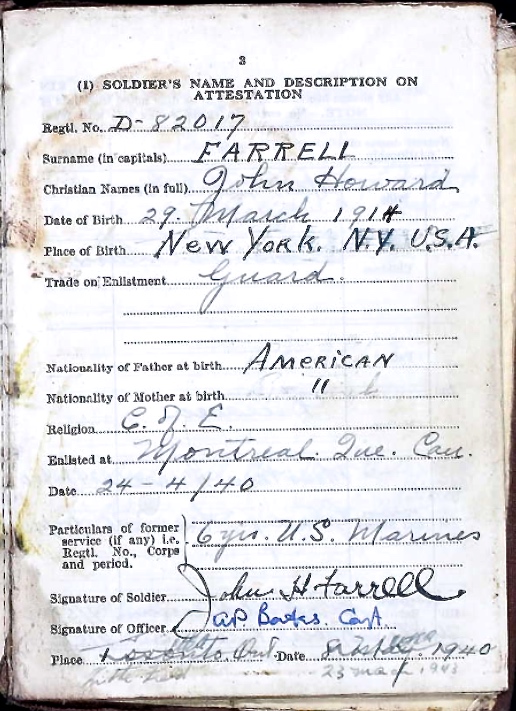 3
(1) SOLDIER'S NAME AND DESCRIPTION ON
ATTESTATION
Regtl. No. D-82017
Surname (in capitals) FARRELL
Christian Names (in full) John Howard
Date of Birth 29. March 1914
Place of Birth New York. N.Y. U.S.A.
Trade on Enlistment Guard.
Nationality of Father at birth AMERICAN
Nationality of Mother at birth "
Religion C. of E.
Enlisted at Montreal. Que. Can.
Date 24-4/40
Particulars of former
service (if any) i.e.
Regtl. No., Corps
and period.
6 yrs. U.S. Marines
Signature of Soldier John H Farrell
Signature of Officer Capt.
Place Toronto, Ont. Date 1940